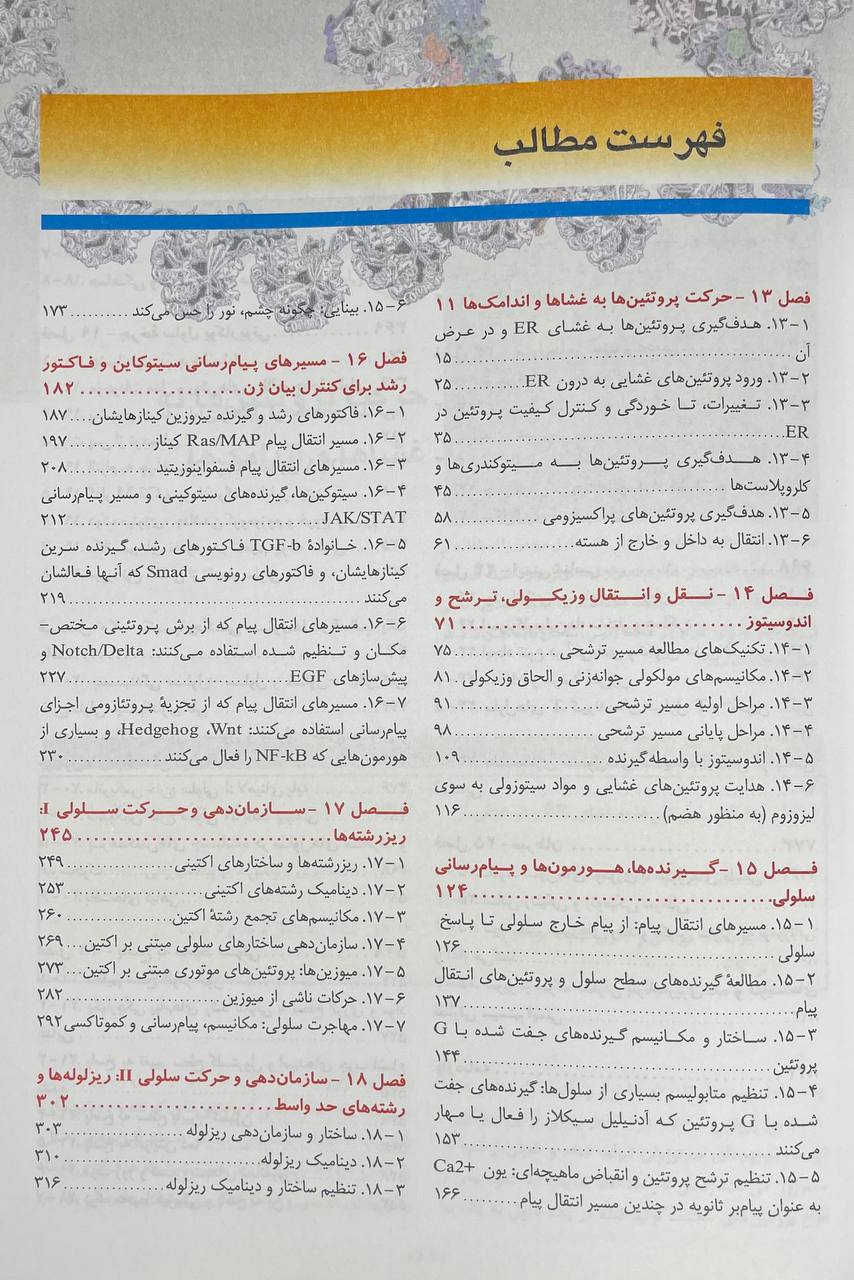 فهرست مطالب
فصل ۱۳ - حرکت پروتئین‌ها به غشاها و اندامک‌ها ۱۱
۱۳-۱. هدف‌گیری پروتئین‌ها به غشای ER و در عرض
آن ........................................ ۱۵
۱۳-۲. ورود پروتئین‌های غشایی به درون ER .......... ۲۵
۱۳-۳. تغییرات، تا خوردگی و کنترل کیفیت پروتئین در
ER ........................................ ۳۵
۱۳-۴. هدف‌گیری پروتئین‌ها به میتوکندری‌ها و
کلروپلاست‌ها .............................. ۴۵
۱۳-۵. هدف‌گیری پروتئین‌های پراکسیزومی ............ ۵۸
۱۳-۶. انتقال به داخل و خارج از هسته .............. ۶۱
فصل ۱۴ - نقل و انتقال وزیکولی، ترشح و
اندوسیتوز .............................. ۷۱
۱۴-۱. تکنیک‌های مطالعه مسیر ترشحی .............. ۷۵
۱۴-۲. مکانیسم‌های مولکولی جوانه‌زنی و الحاق وزیکولی . ۸۱
۱۴-۳. مراحل اولیه مسیر ترشحی .................. ۹۱
۱۴-۴. مراحل پایانی مسیر ترشحی .................. ۹۸
۱۴-۵. اندوسیتوز با واسطه‌گیرنده .................. ۱۰۹
۱۴-۶. هدایت پروتئین‌های غشایی و مواد سیتوزولی به سوی
لیزوزوم (به منظور هضم) .................... ۱۱۶
فصل ۱۵ - گیرنده‌ها، هورمون‌ها و پیام‌رسانی
سلولی .................................. ۱۲۴
۱۵-۱. مسیرهای انتقال پیام: از پیام خارج سلولی تا پاسخ
سلولی .................................... ۱۲۶
۱۵-۲. مطالعهٔ گیرنده‌های سطح سلول و پروتئین‌های انتقال
پیام ...................................... ۱۳۷
۱۵-۳. ساختار و مکانیسم گیرنده‌های جفت شده با G
پروتئین .................................. ۱۴۴
۱۵-۴. تنظیم متابولیسم بسیاری از سلول‌ها: گیرنده‌های جفت
شده با G پروتئین که آدنیلیل سیکلاز را فعال یا مهار
می‌کنند .................................. ۱۵۳
۱۵-۵. تنظیم ترشح پروتئین و انقباض ماهیچه‌ای: یون Ca2+
به عنوان پیام‌بر ثانویه در چندین مسیر انتقال پیام ......... ۱۶۶
۱۵-۶. بینایی: چگونه چشم، نور را حس می‌کند .......... ۱۷۳
فصل ۱۶ - مسیرهای پیام‌رسانی سیتوکاین و فاکتور
رشد برای کنترل بیان ژن .................... ۱۸۲
۱۶-۱. فاکتورهای رشد و گیرنده تیروزین کینازهایشان .... ۱۸۷
۱۶-۲. مسیر انتقال پیام Ras/MAP کیناز .............. ۱۹۷
۱۶-۳. مسیرهای انتقال پیام فسفواینوزیتید ............ ۲۰۸
۱۶-۴. سیتوکین‌ها، گیرنده‌های سیتوکینی، و مسیر پیام‌رسانی
JAK/STAT .............................. ۲۱۲
۱۶-۵. خانوادهٔ TGF-b فاکتورهای رشد، گیرنده سرین
کینازهایشان، و فاکتورهای رونویسی Smad که آنها فعالشان
می‌کنند .................................. ۲۱۹
۱۶-۶. مسیرهای انتقال پیام که از برش پروتئینی مختص-
مکان و تنظیم شده استفاده می‌کنند: Notch/Delta و
پیش‌سازهای EGF .......................... ۲۲۷
۱۶-۷. مسیرهای انتقال پیام که از تجزیهٔ پروتئازومی اجزای
پیام‌رسانی استفاده می‌کنند: Wnt، Hedgehog، و بسیاری از
هورمون‌هایی که NF-kB را فعال می‌کنند .............. ۲۳۰
فصل ۱۷ - سازمان‌دهی و حرکت سلولی I:
ریزرشته‌ها .............................. ۲۴۵
۱۷-۱. ریزرشته‌ها و ساختارهای اکتینی .............. ۲۴۹
۱۷-۲. دینامیک رشته‌های اکتینی .................. ۲۵۳
۱۷-۳. مکانیسم‌های تجمع رشتهٔ اکتین .............. ۲۶۰
۱۷-۴. سازمان‌دهی ساختارهای سلولی مبتنی بر اکتین ... ۲۶۹
۱۷-۵. میوزین‌ها: پروتئین‌های موتوری مبتنی بر اکتین ... ۲۷۳
۱۷-۶. حرکات ناشی از میوزین .................... ۲۸۲
۱۷-۷. مهاجرت سلولی: مکانیسم، پیام‌رسانی و کموتاکسی ۲۹۲
فصل ۱۸ - سازمان‌دهی و حرکت سلولی II: ریزلوله‌ها و
رشته‌های حد واسط ...................... ۳۰۲
۱۸-۱. ساختار و سازمان‌دهی ریزلوله ................ ۳۰۳
۱۸-۲. دینامیک ریزلوله .......................... ۳۱۰
۱۸-۳. تنظیم ساختار و دینامیک ریزلوله .............. ۳۱۶